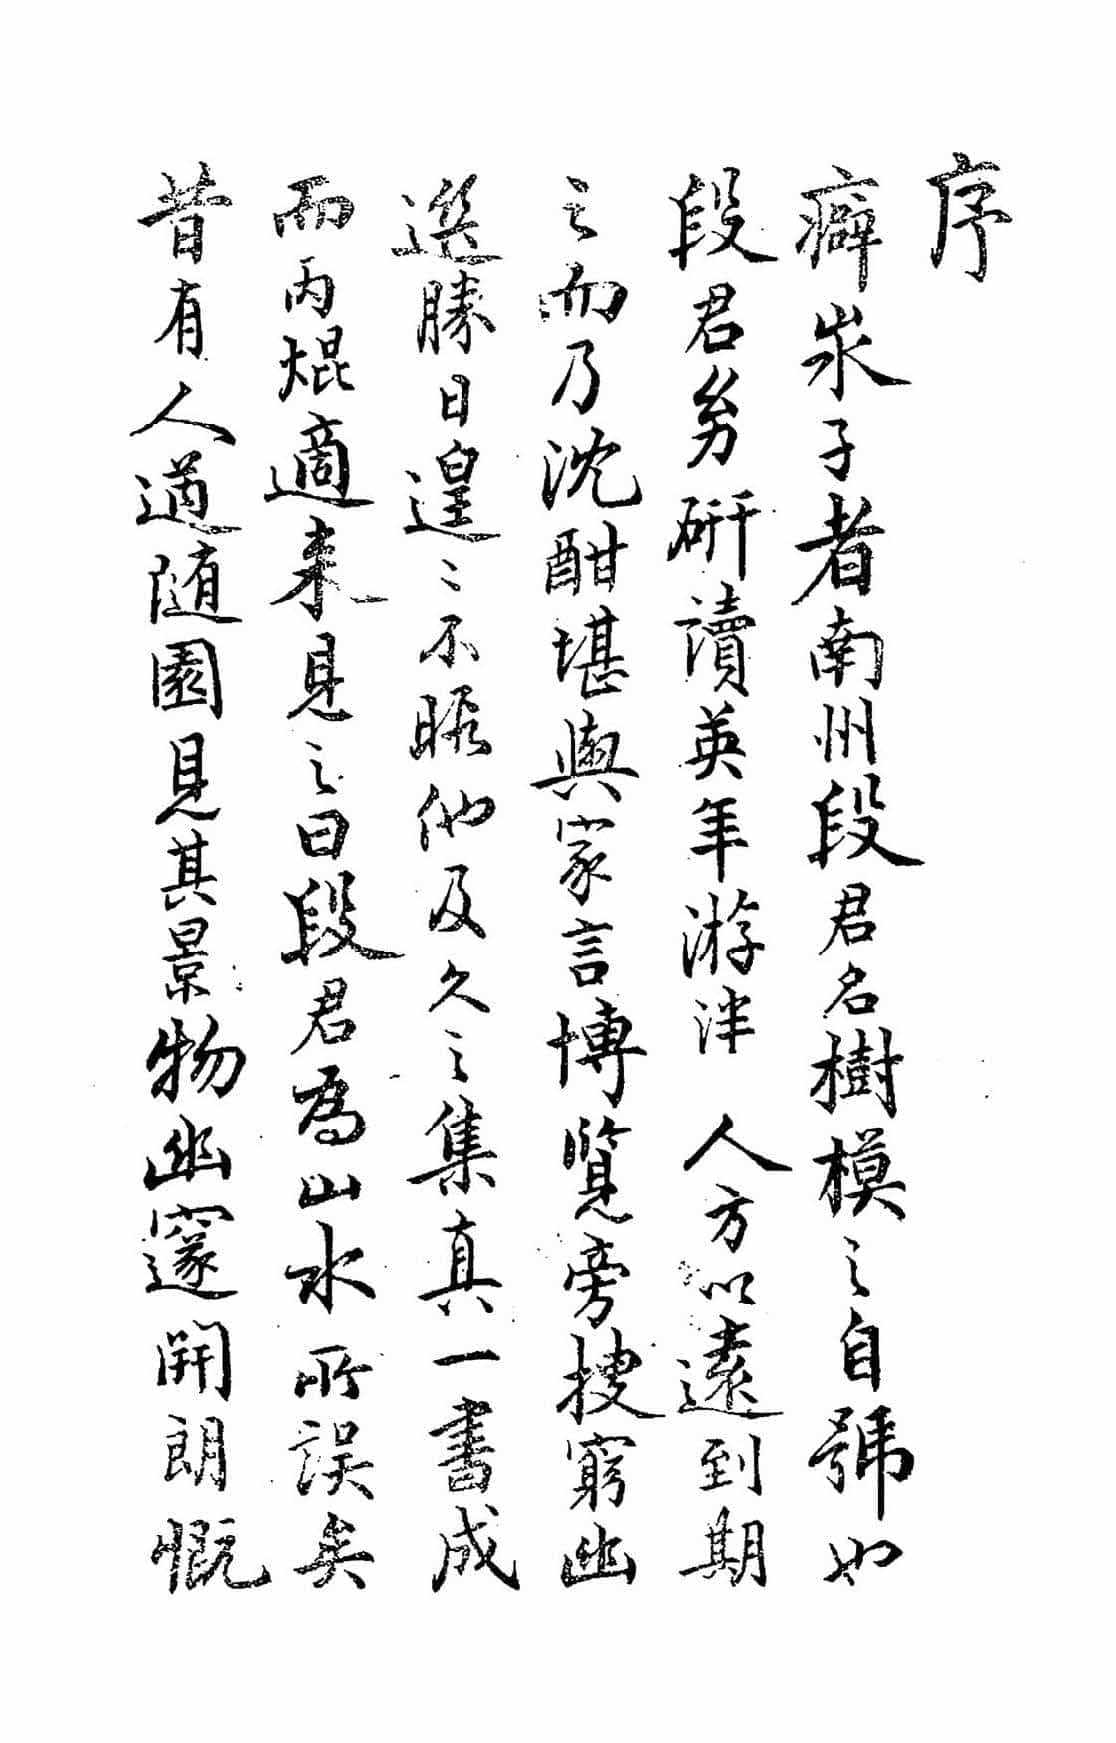 序
癖氶子者南州段君名樹模之自號也
段君幼研讀英年游泮 人方以遠到期
之而乃沈酣堪輿家言博覽旁搜窮幽
選勝日遑〻不暇他及久之集真一書成
而丙焜適来見之曰段君為山水所誤矣
昔有人遊随園見其景物幽邃開朗慨